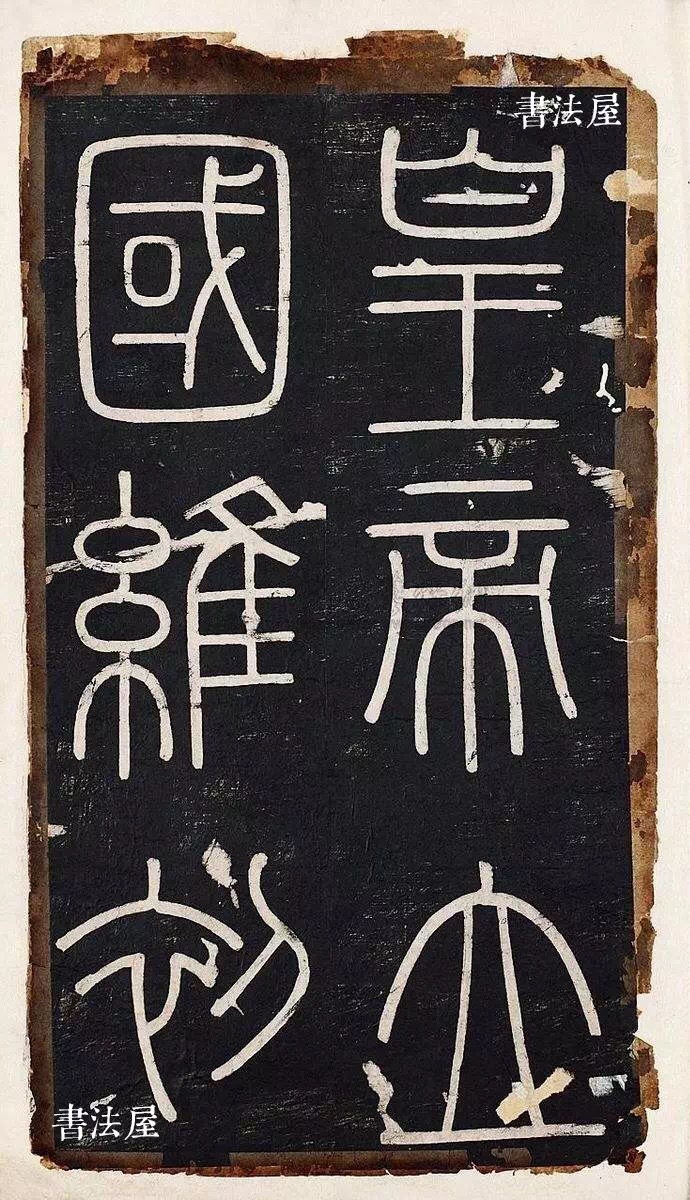 書法屋
皇帝立
國維初
書法屋